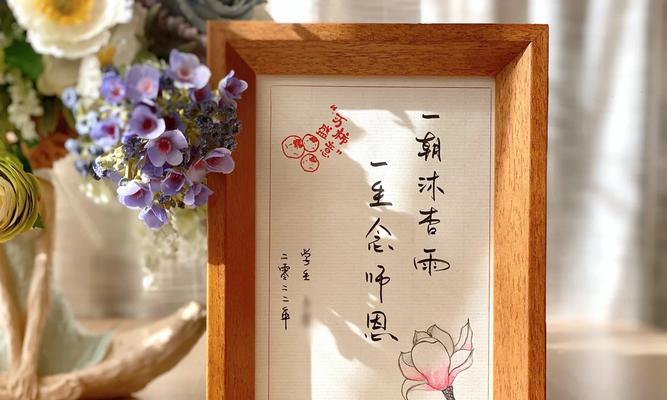 一朝沐杏雨
一生念师恩
学生
二零二二年